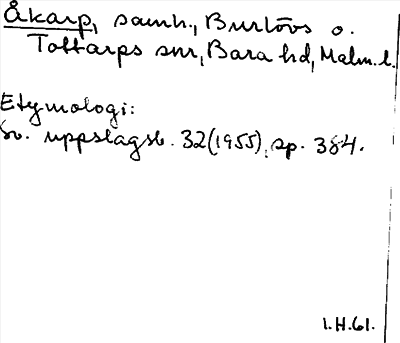 Åkarp, samh., Burlövs o.
Tottarps snr, Bara hd, Malm. l.
Etymologi:
Sv. uppslagsb. 32 (1955), sp. 384.
1.H.61.